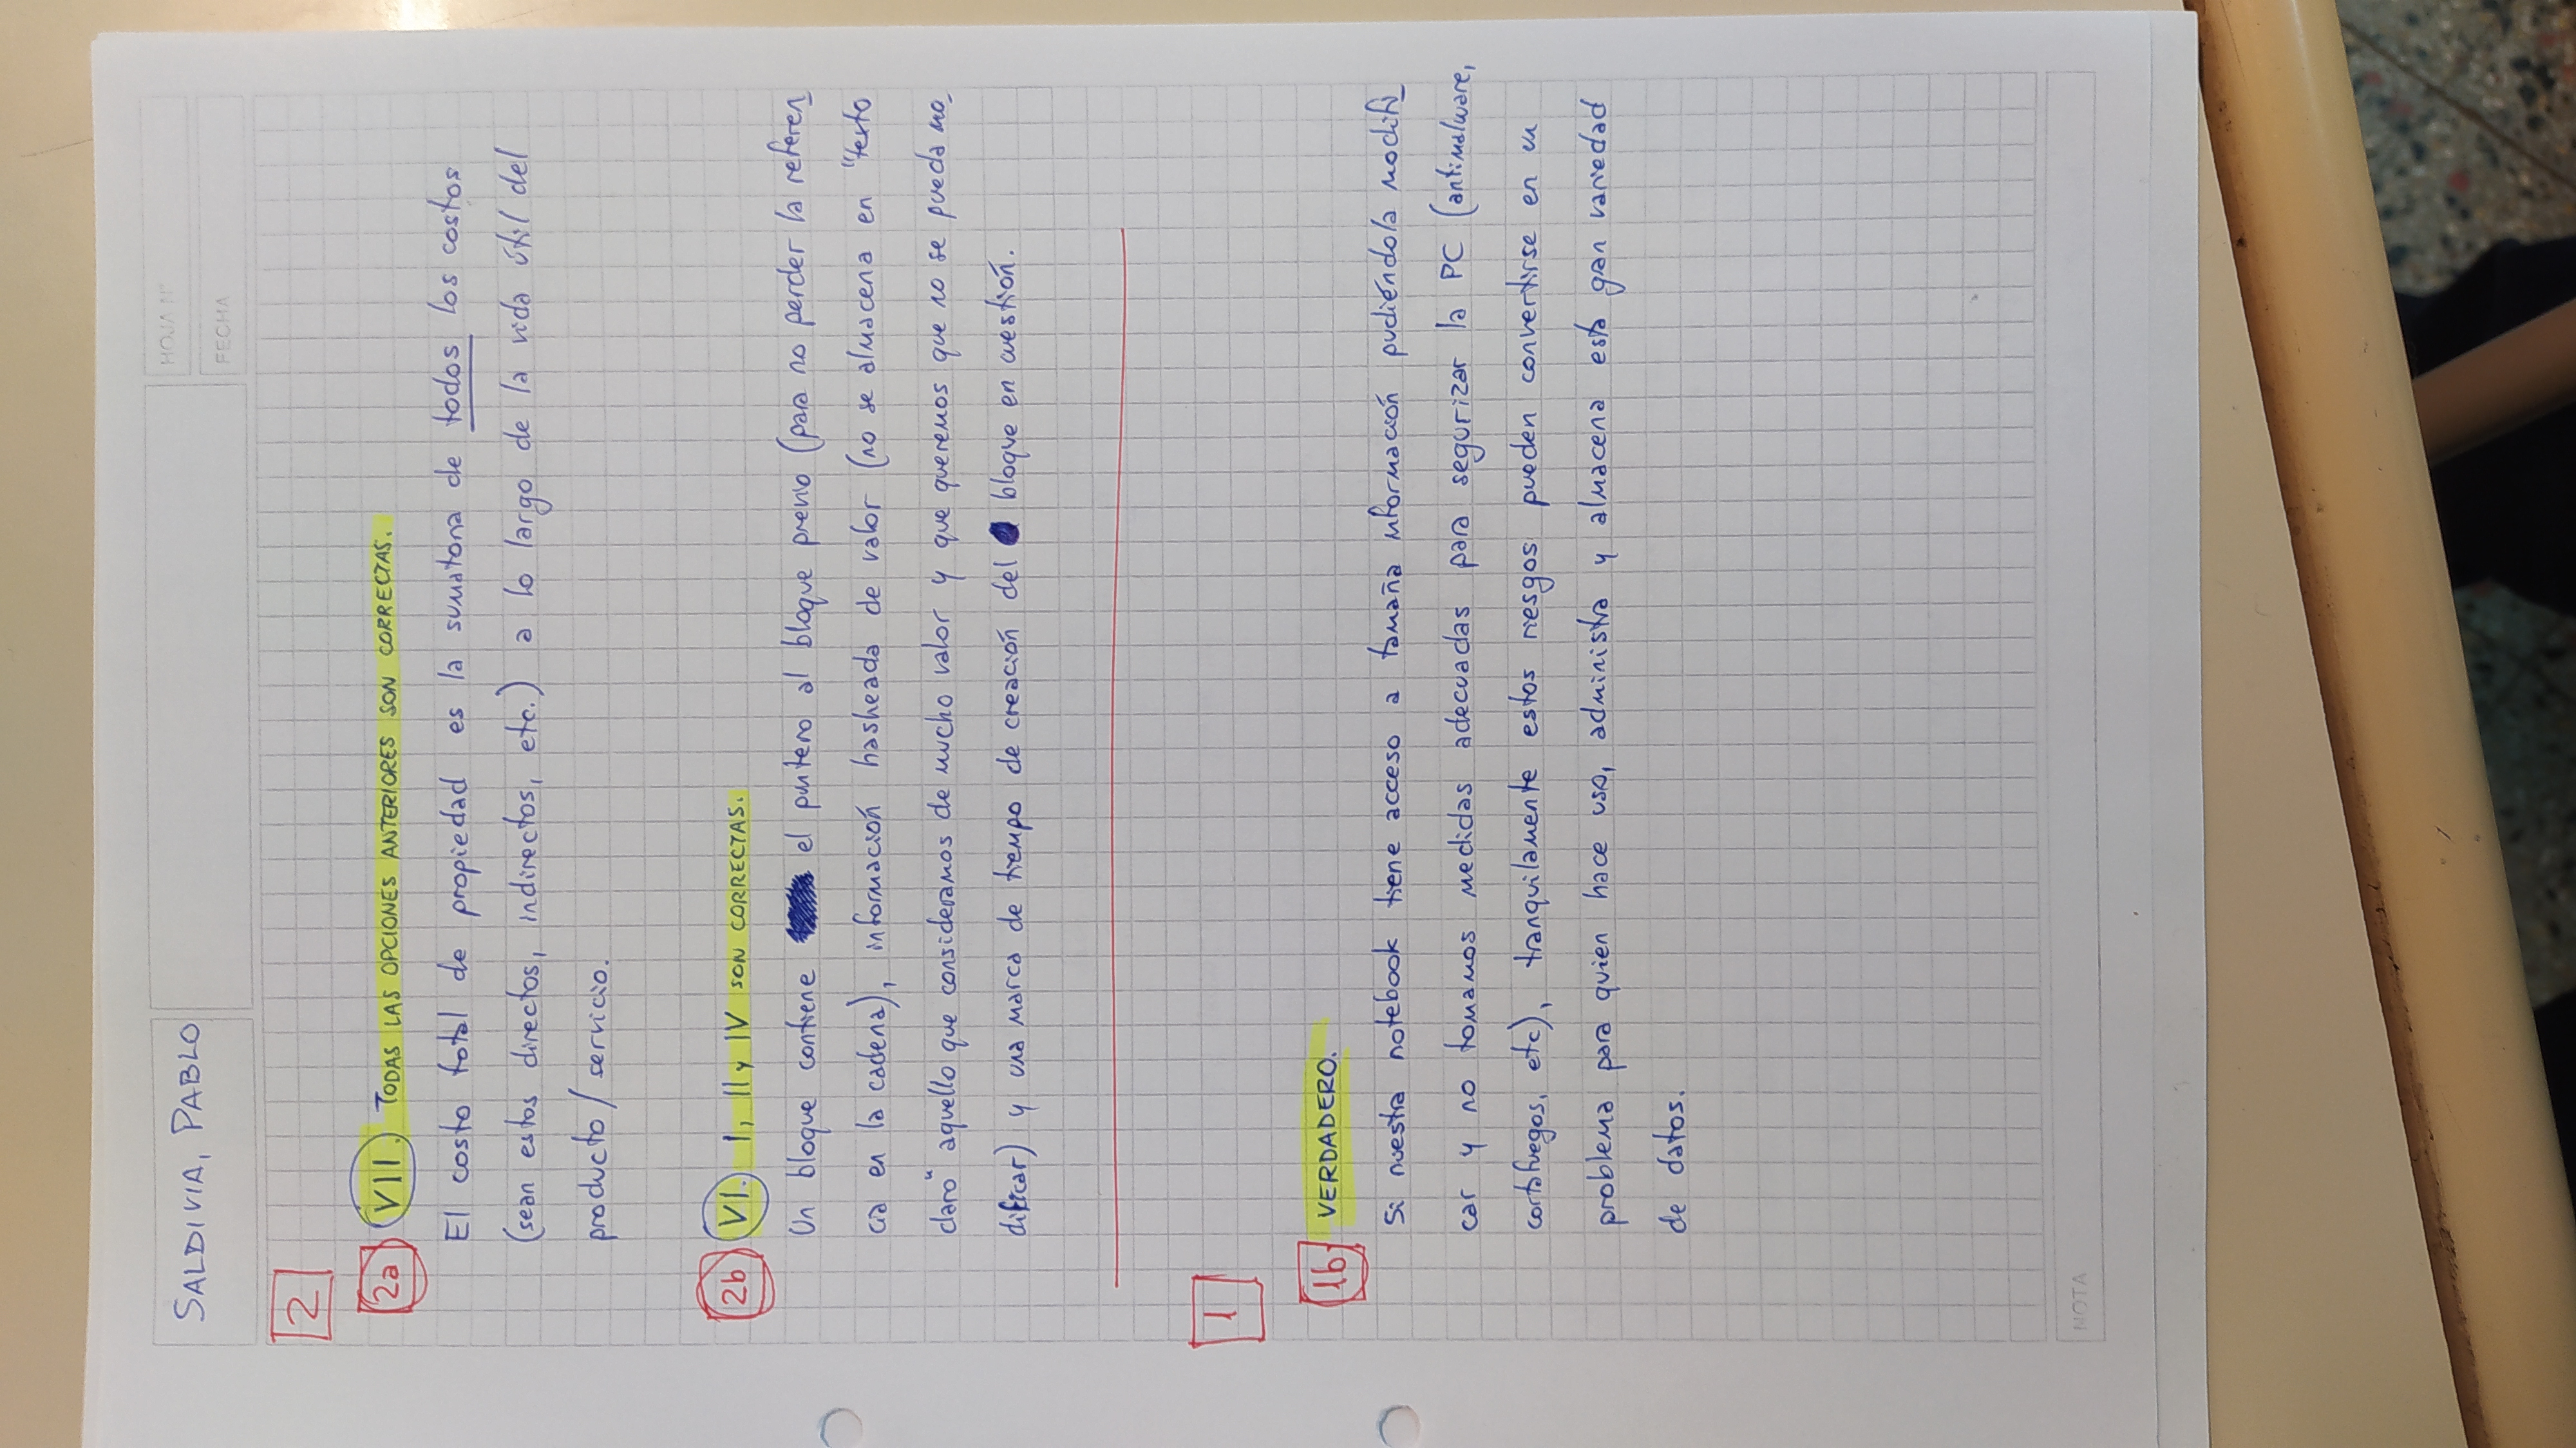 SALDIVIA, PABLO
HOJA N°
FECHA
2
2a VII. TODAS LAS OPCIONES ANTERIORES SON CORRECTAS.
El costo total de propiedad es la sumatoria de todos los costos
(sean estos directos, indirectos, etc.) a lo largo de la vida útil del
producto / servicio.
2b VI. I, II y IV SON CORRECTAS.
Un bloque contiene el puntero al bloque previo (para no perder la referen_
cia en la cadena), información hasheada de valor (no se almacena en "texto
claro" aquello que consideramos de mucho valor y que queremos que no se pueda mo_
dificar) y una marca de tiempo de creación del bloque en cuestión.
1
1b VERDADERO.
Si nuestra notebook tiene acceso a tamaña información pudiéndola modifi_
car y no tomamos medidas adecuadas para segurizar la PC (antimalware,
cortafuegos, etc), tranquilamente estos riesgos pueden convertirse en un
problema para quien hace uso, administra y almacena esta gran variedad
de datos.
NOTA